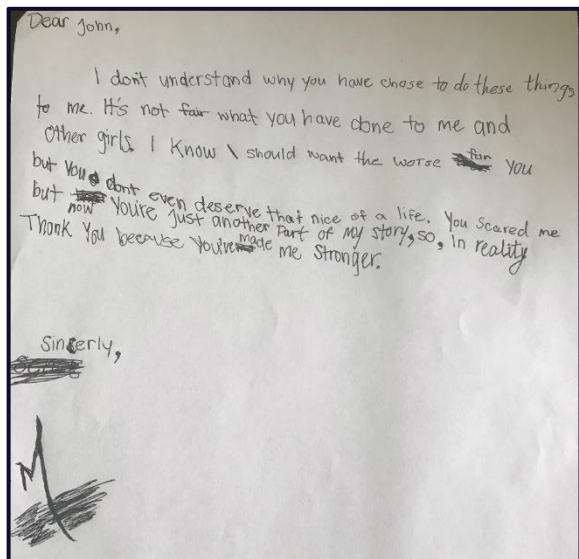 Dear John,
I don't understand why you have chose to do these things
to me. It's not fair what you have done to me and
Other girls. I Know I should want the worse for you
but you dont even deserve that nice of a life. You scared me
but now You're just another Part of My story, so, In reality
Thank You because You've made me Stronger.
Sincerly,
M